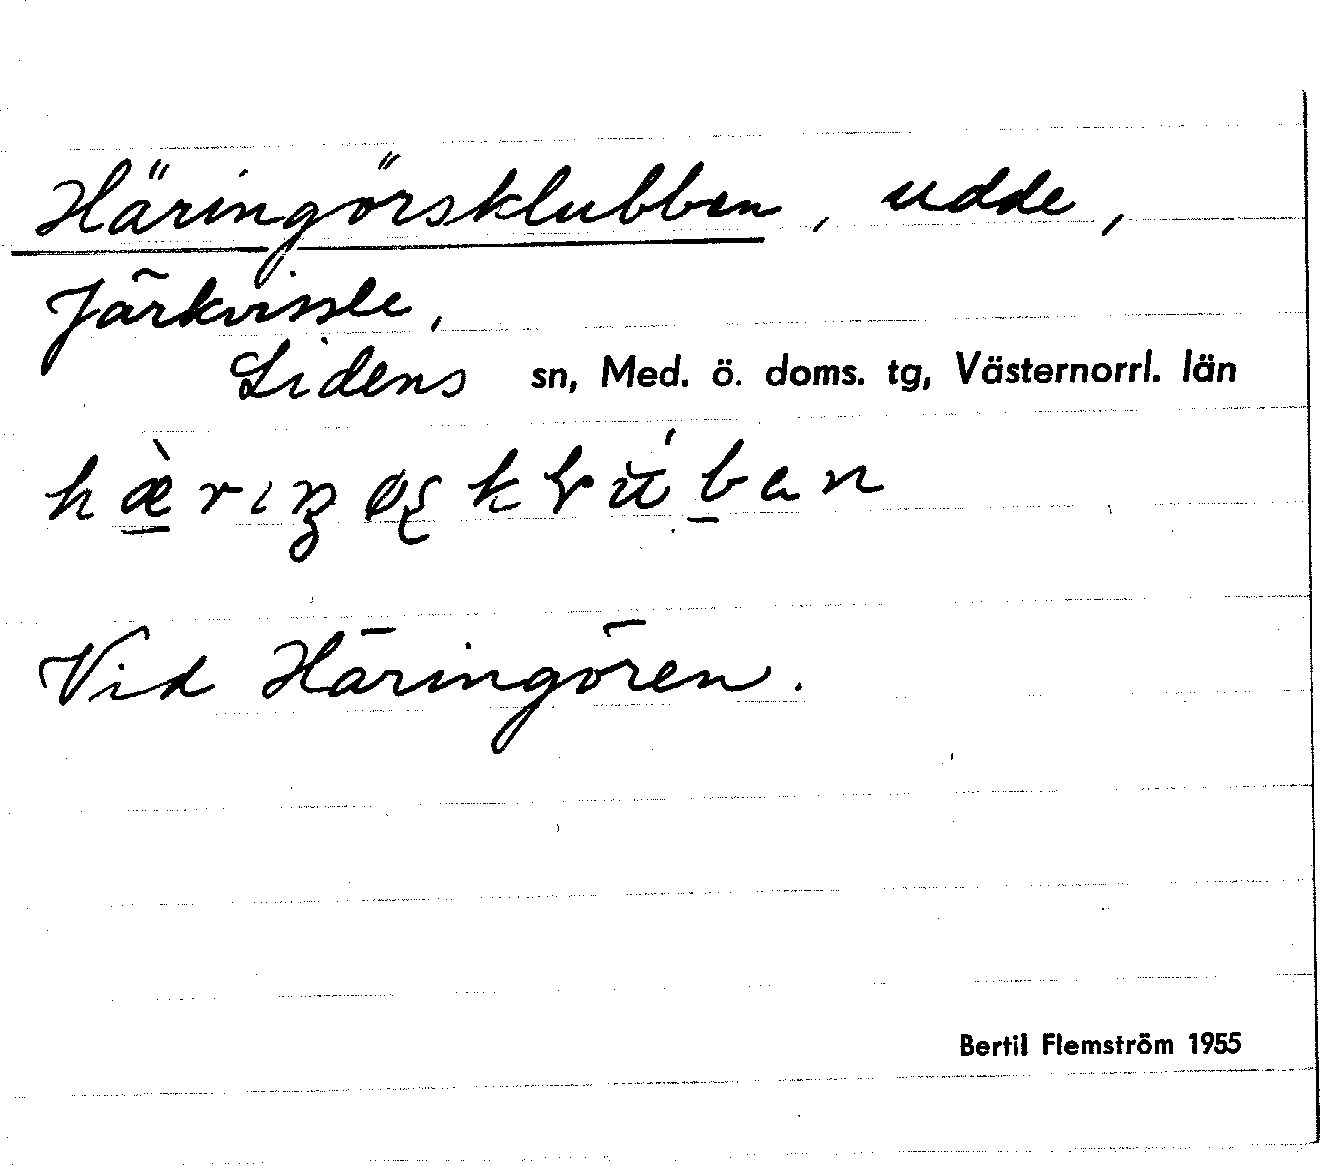 Häringörsklubben, udde,
Järkvissle,
Lidens sn, Med. ö. doms. tg, Västernorrl. län
Vid Häringören.
Bertil Flemström 1955